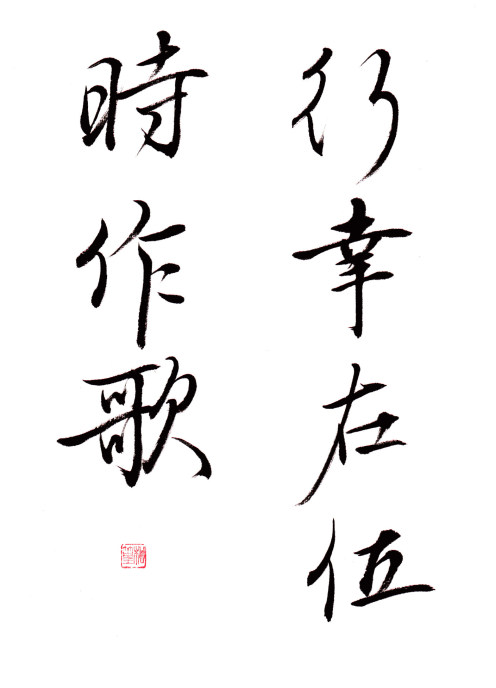 行幸在伍
時作歌